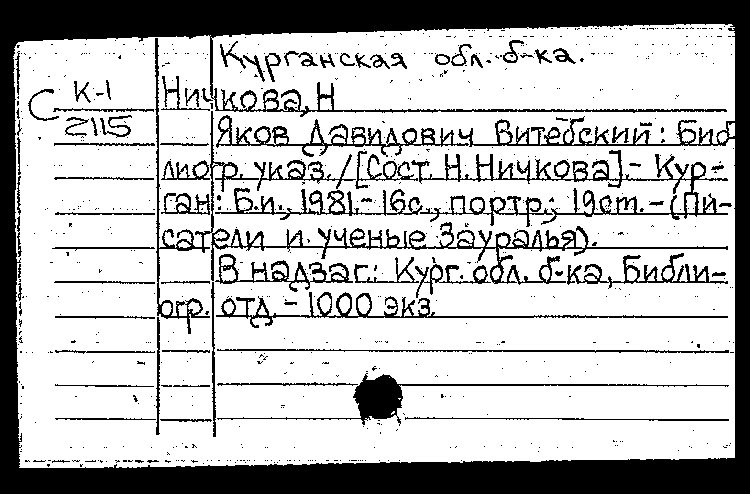 Курганская обл. б-ка.
С К-1
2115
Ничкова, Н
Яков Давидович Витебский: Биб
лиогр. указ. /[Сост. Н. Ничкова].- Кур-
ган: Б.и., 1981.- 16с., портр.; 19cm. - (Пи-
сатели и ученые Зауралья).
В надзаг.: Кург. обл. б-ка, Библи-
огр. отд. - 1000 экз.